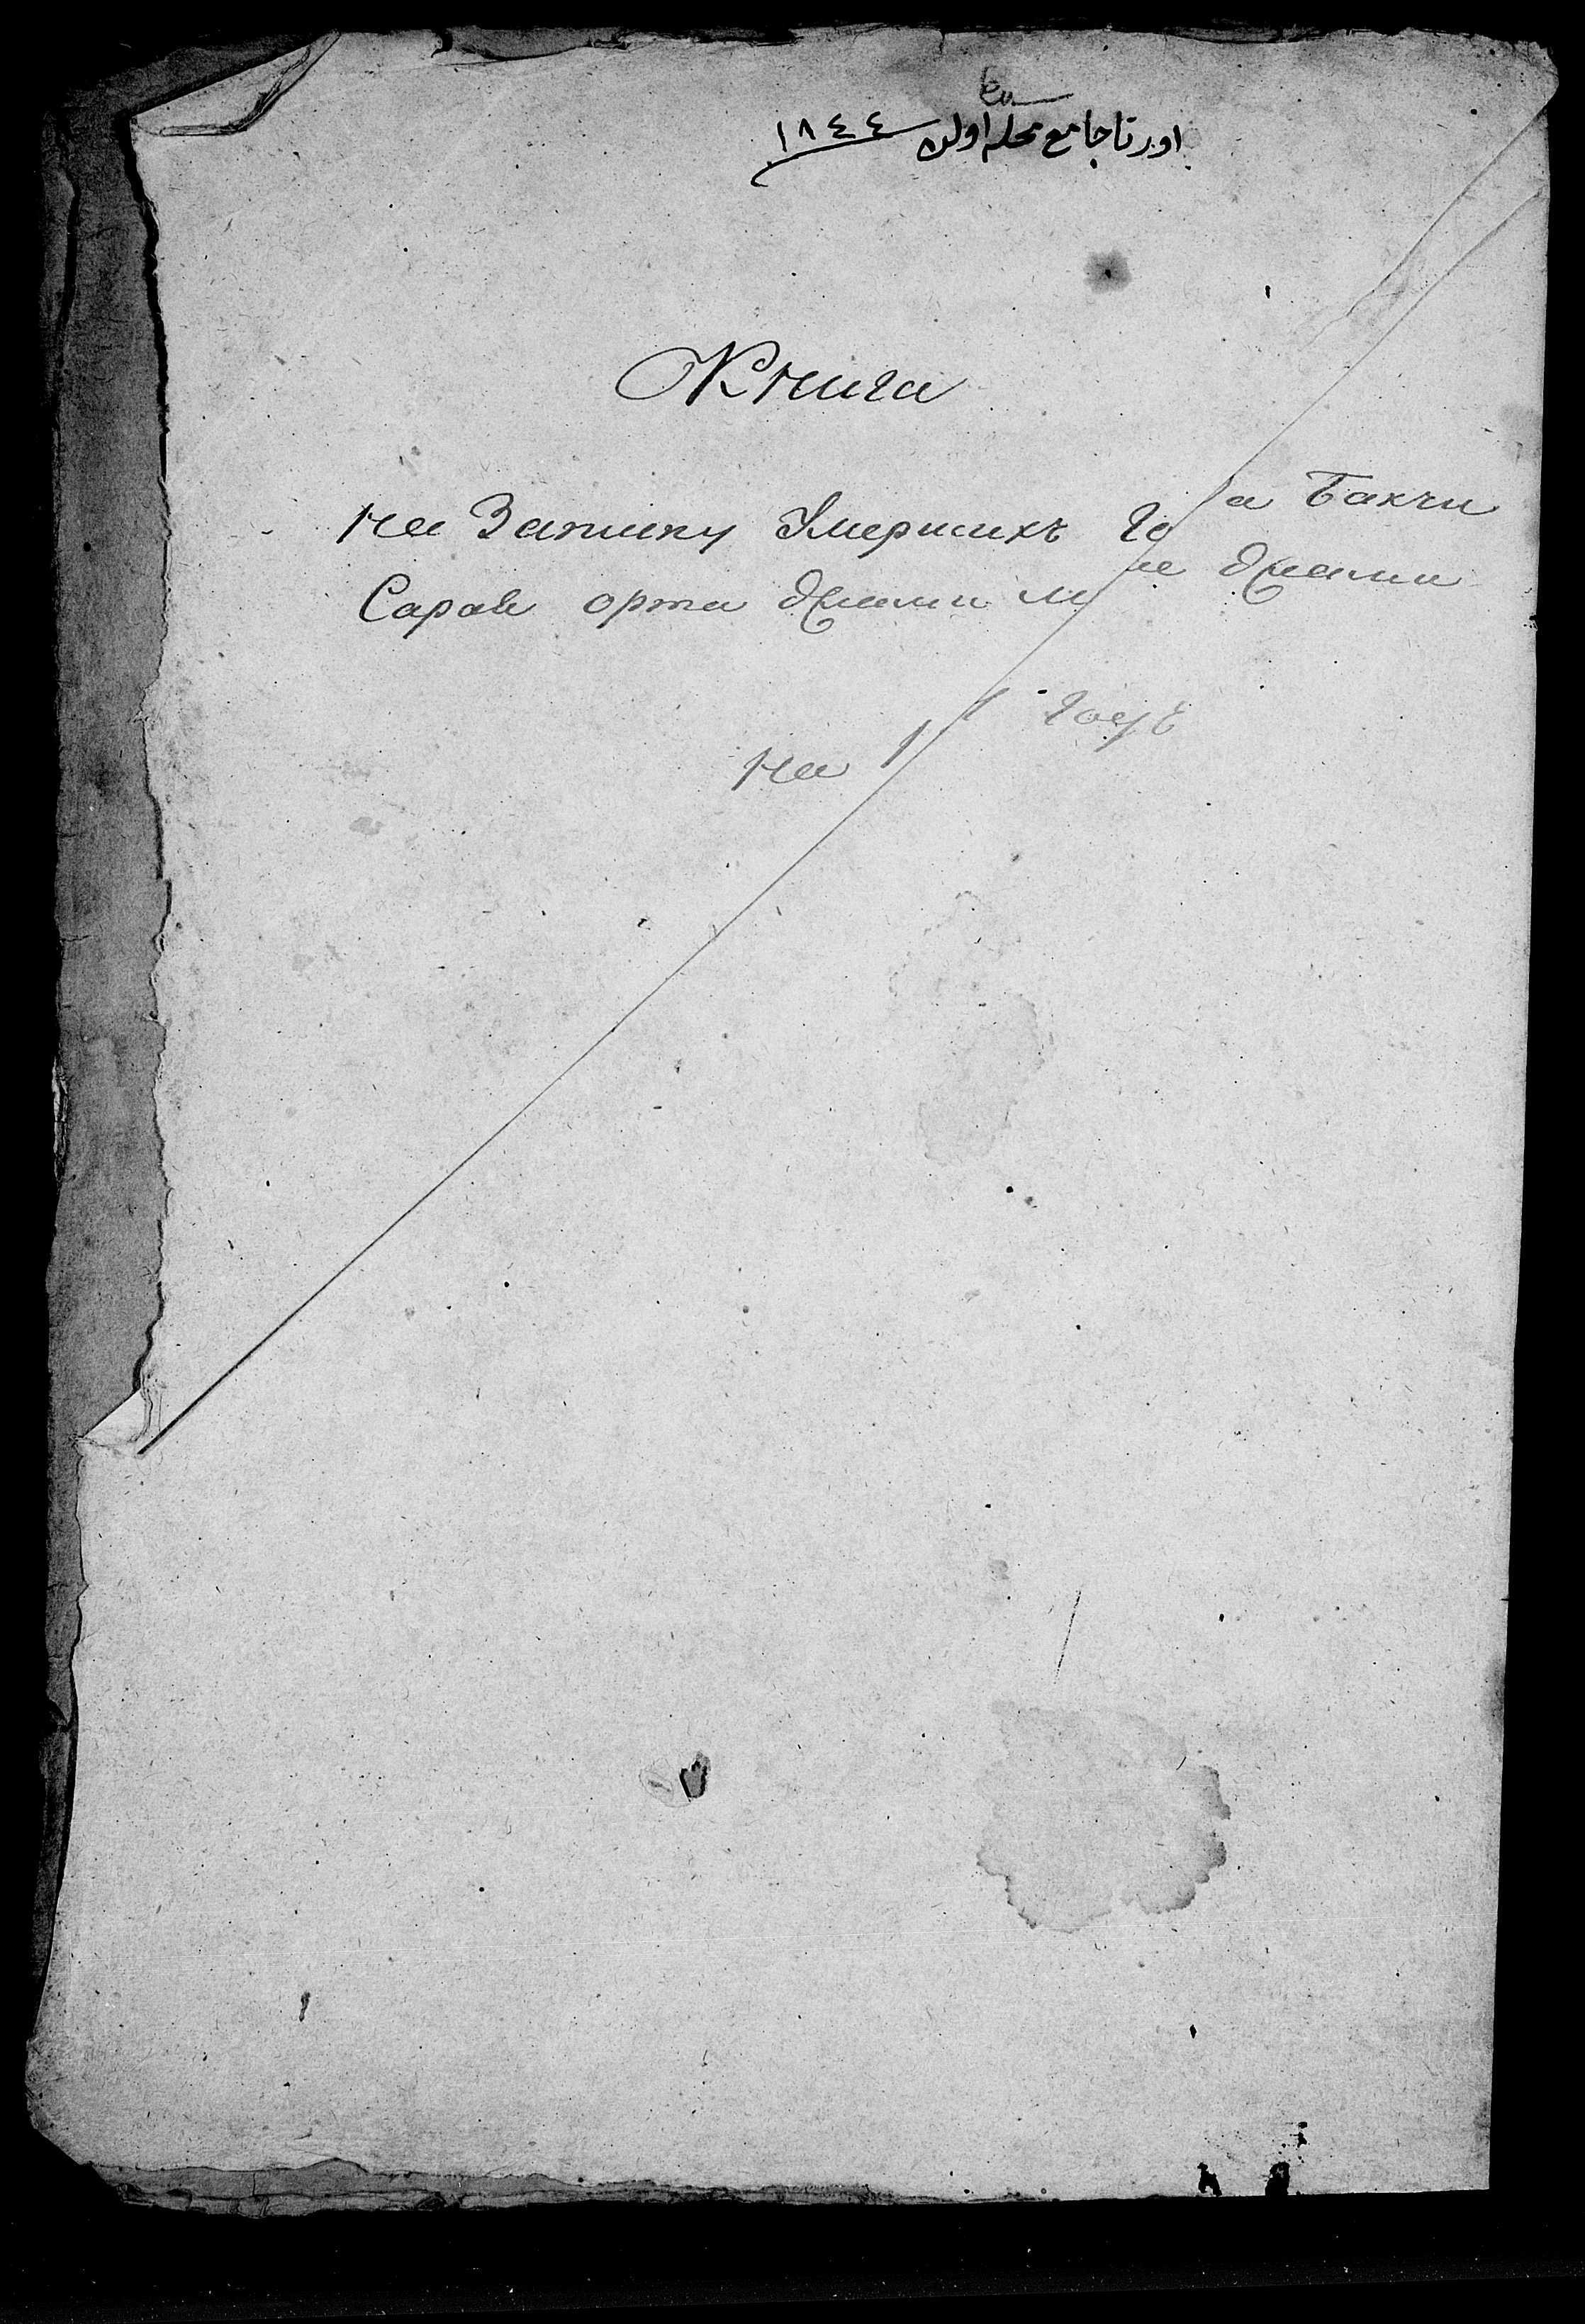 اورتا جامع محله اولن ١٨٤٤
Книга
на Записку Умершихъ го а Бакчи
Сарай орта джами м ле джами
на 1 годъ